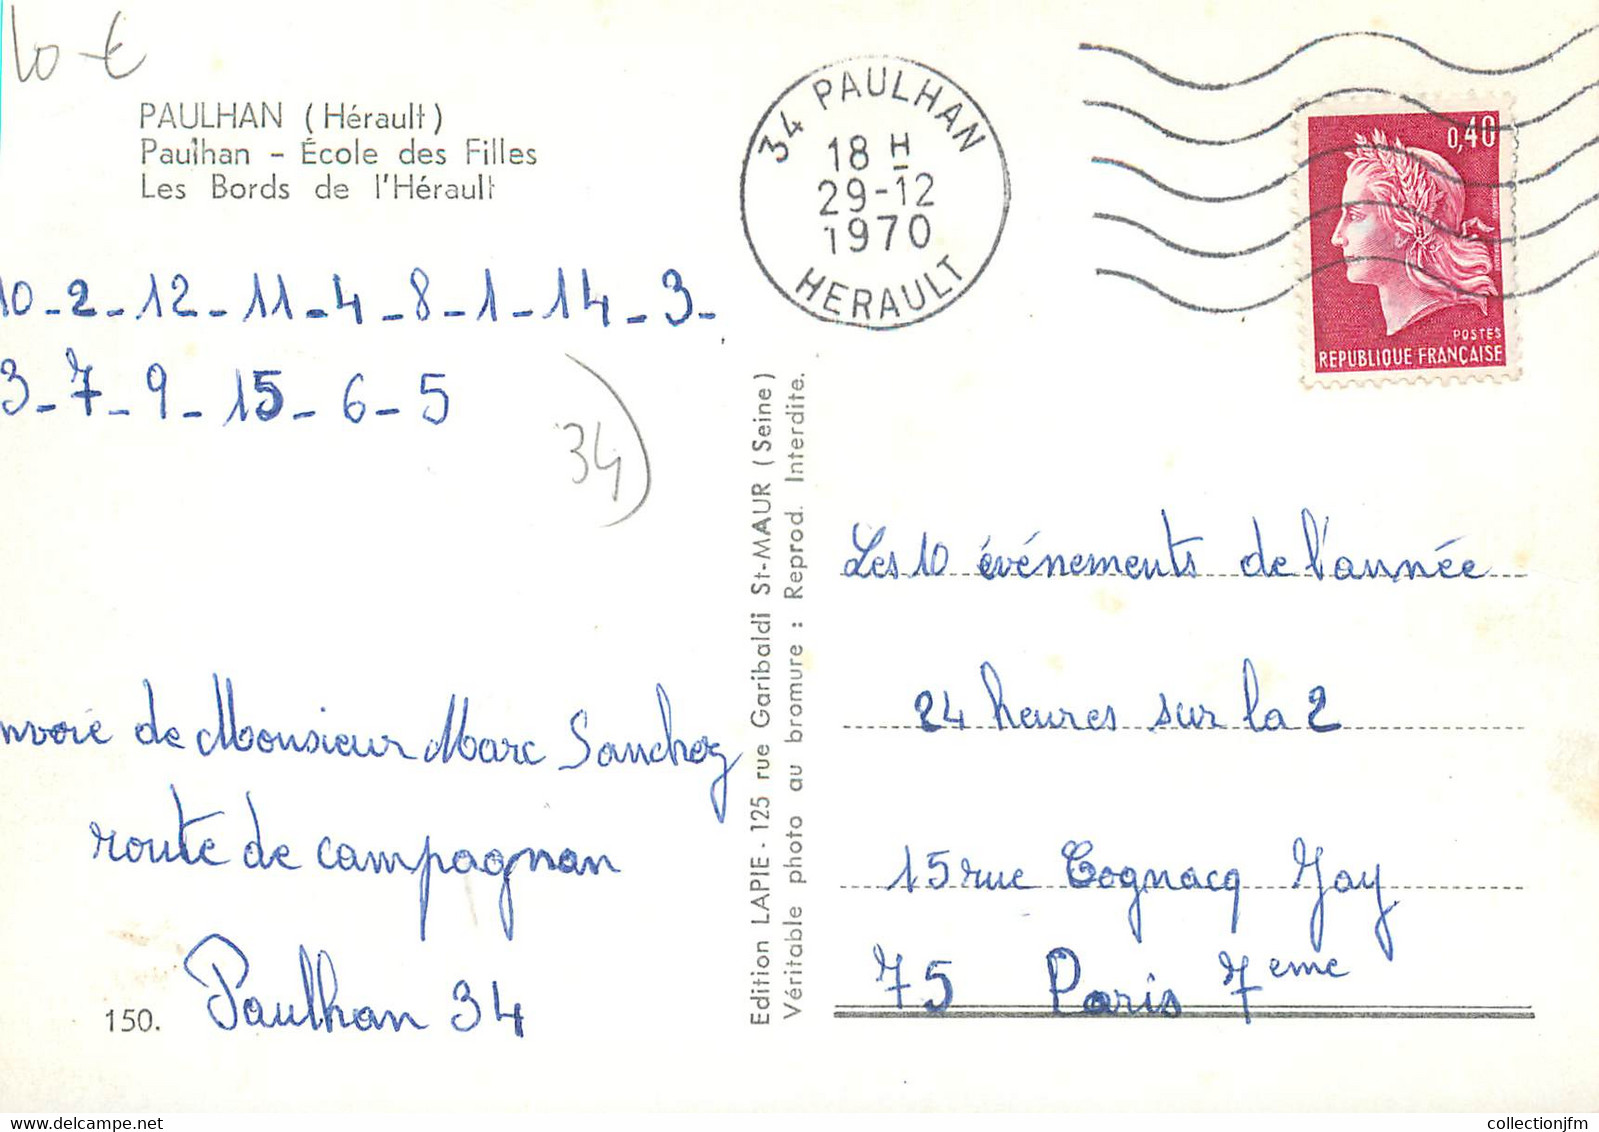 10-€
PAULHAN (Hérault)
Paulhan - École des Filles
Les Bords de l'Hérault
34 PAULHAN
18 H
29-12
1970
HERAULT
0,40
POSTES
REPUBLIQUE FRANÇAISE
10-2-12-11-4-8-1-14-3-
3-7-9-15-6-5
34
Edition LAPIE - 125 rue Garibaldi St-MAUR (Seine)
Véritable photo au bromure : Reprod. Interdite.
nvoie de Monsieur Marc Sanchez
route de campagnan
Paulhan 34
150.
Les 10 événements de l'année
24 heures sur la 2
15 rue Cognacq Jay
75 Paris 7eme
collectionjfm